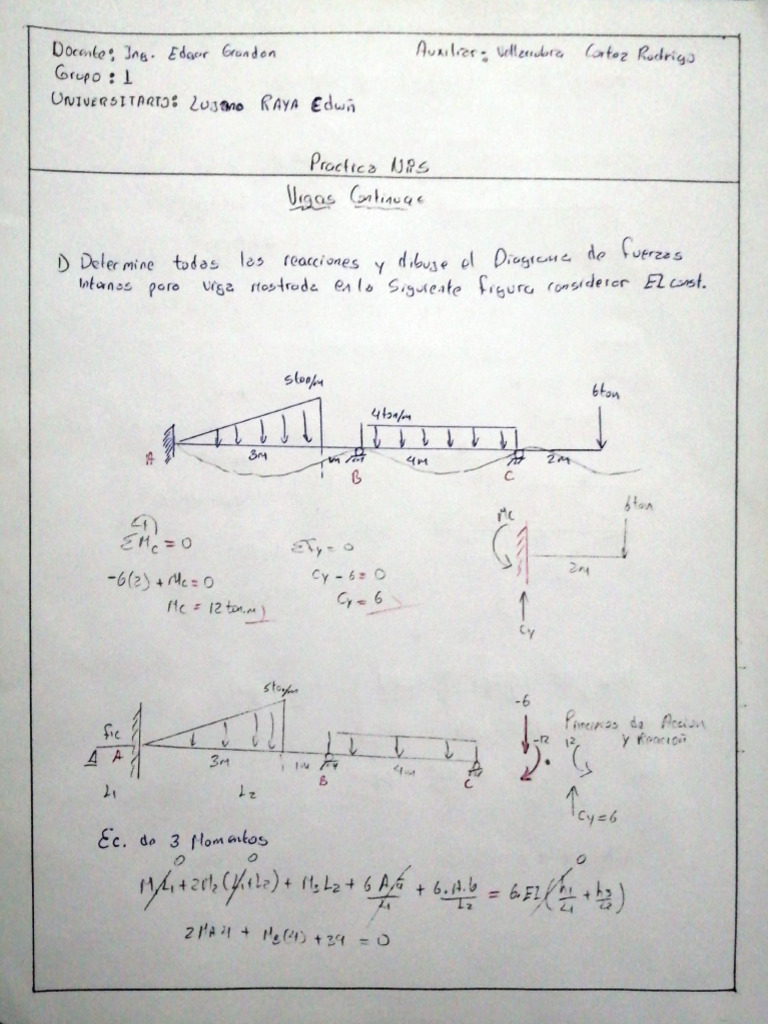 Docente: Ing. Edgar Grandon Auxiliar: Cortez Rodrigo
Grupo: 1
UNIVERSITARIO: RAYA Edwin
Practica Nº5
Vigas Continuas
1) Determine todas las reacciones y dibuje el Diagrama de fuerzas
Internas para viga Mostrada en la Siguiente figura considerar EI const.
5ton/m
6ton
4ton/m
A 3m 1m B 4m C 2m
ΣMc = 0
-6(2) + Mc = 0
Mc = 12 ton.m
ΣFy = 0
Cy - 6 = 0
Cy = 6
Mc
6ton
2m
Cy
5ton/m
fic
A 3m 1m B 4m C
L1 L2
-6
-12 12
Principios de Accion
y Reacción
Cy=6
Ec. de 3 Momentos
0 0 0
M1L1 + 2M2(L1+L2) + M3L2 + 6A1a/L1 + 6.A.b/L2 = 6.EI(h1/L1 + h3/L2)
2MA4 + MB(4) + 39 = 0